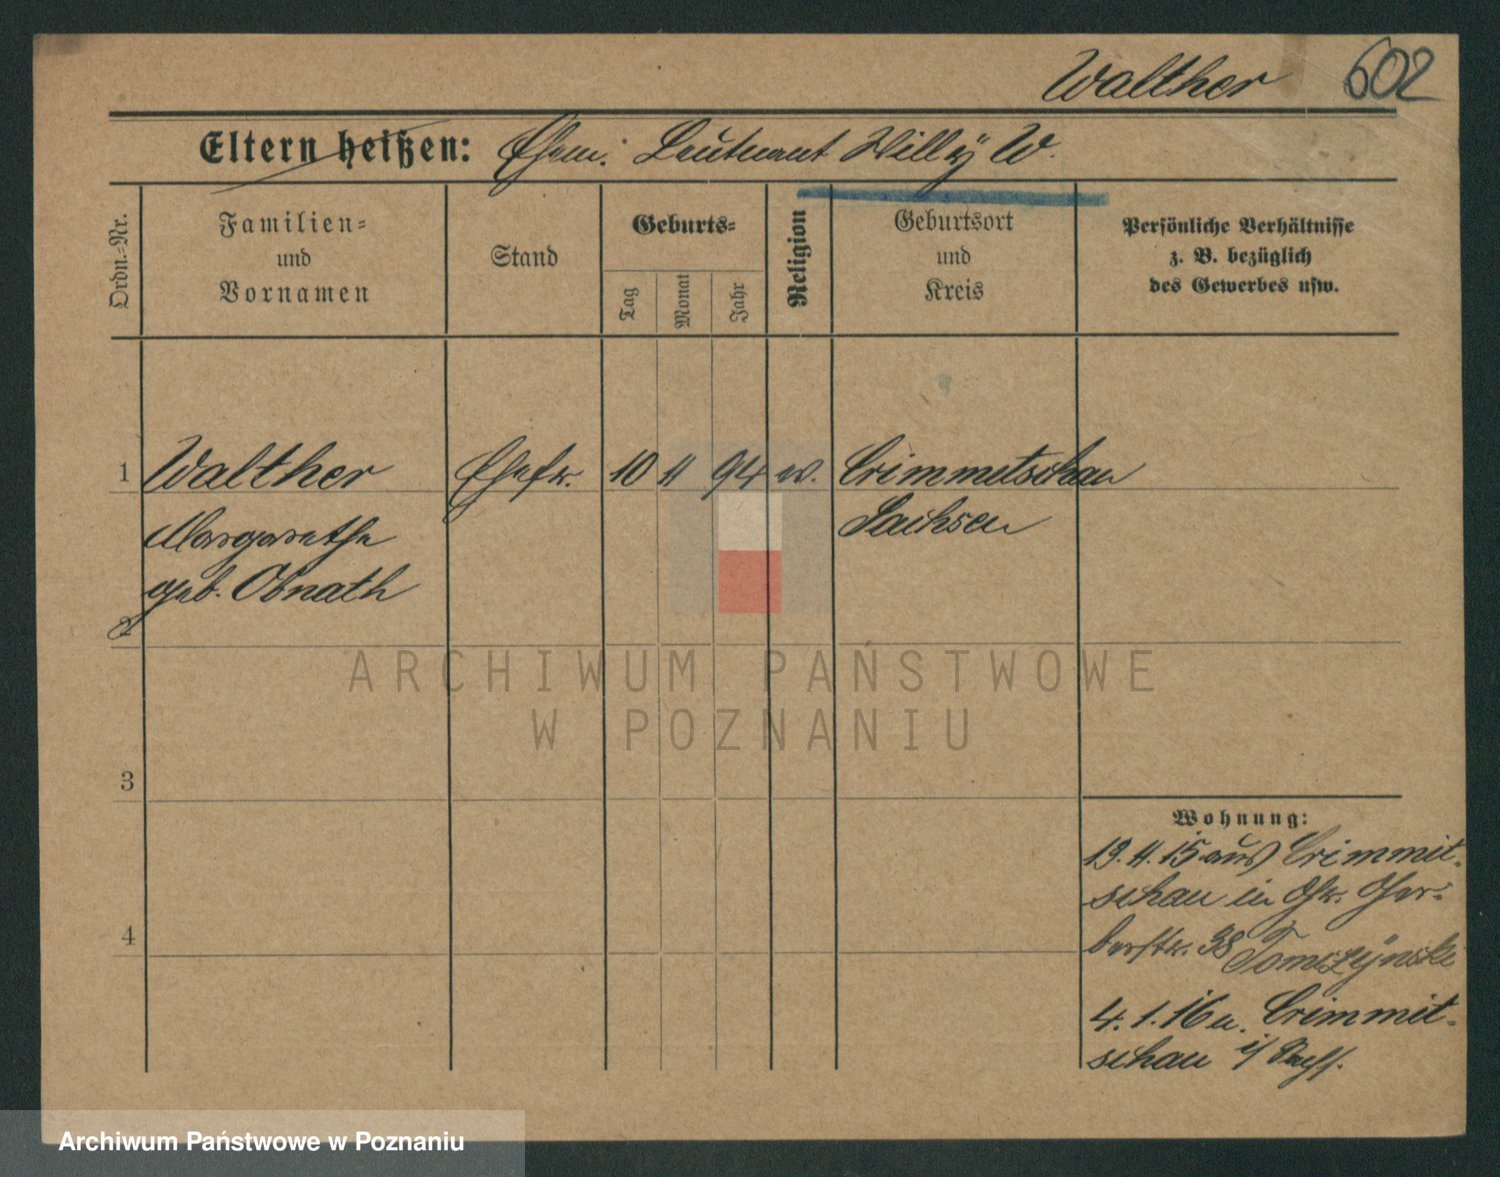 Walther 602
Eltern heißen: Ehem: Leutnant Willy W.
Ordn.-Nr.
Familien-
und
Vornamen
Stand
Geburts-
Tag
Monat
Jahr
Religion
Geburtsort
und
Kreis
Persönliche Verhältnisse
z. B. bezüglich
des Gewerbes usw.
1 Walther Ehefr. 10 11 94 ev. Crimmitschau
Margarethe Sachsen
geb. Obnath
2
3
4
Wohnung:
19. 11. 15 aus Crimmit-
schau in Gr. Ger-
berstr. 38 Tomczynski
4. 1. 16 n. Crimmit-
schau i/ Sachs.
ARCHIWUM PAŃSTWOWE
W POZNANIU
Archiwum Państwowe w Poznaniu